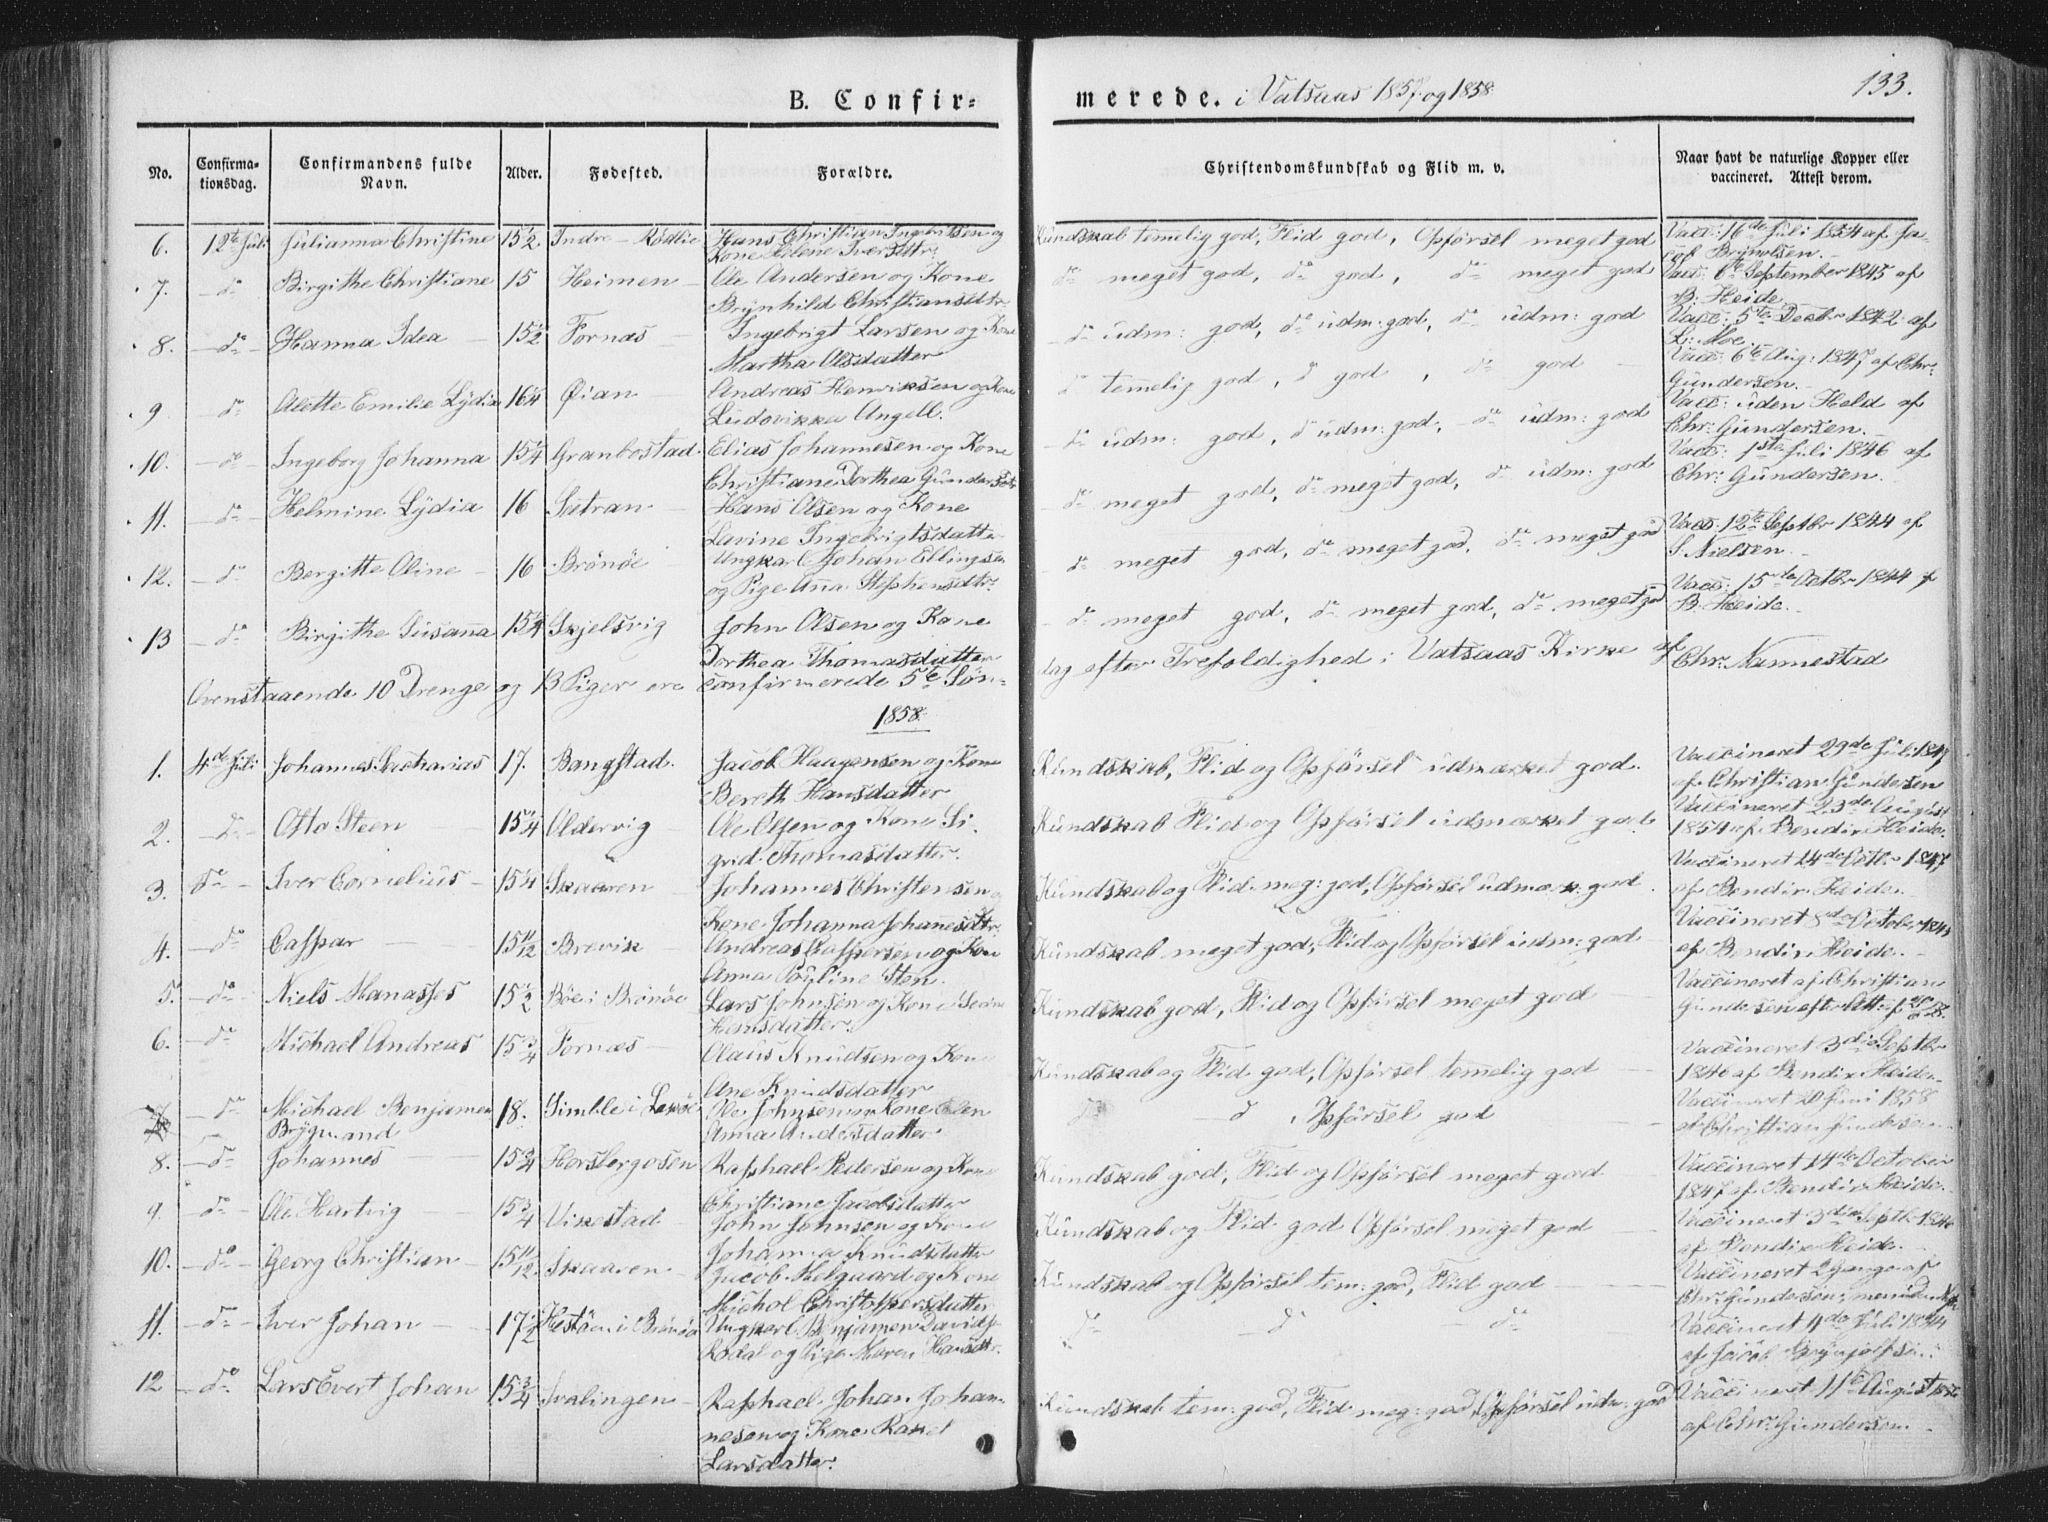 B. Confir-
merede. i Vatsaas 1857 og 1858
133.
No.
Confirma-
tionsdag.
Confirmandens fulde
Navn.
Alder.
Fødested.
Forældre.
Christendomskundskab og Flid m. v.
Naar havt de naturlige Kopper eller
vaccineret. Attest derom.
6. 12te Juli Julianna Christine 15½ Indre - Rødlie Hans Christian Ingebritsen og
Kone Iversdtr: Kundskab temelig god, Flid god, Opførsel meget god Vacc: 16de Juli 1854 af Ja-
cob Brynolsen.
7. do Birgithe Christiane 15 Heimen Ole Andersen og Kone
Brynhild Christiansdtr do meget god, do god, do meget god Vacc: 6te September 1845 af
B. Heide
8. do Hanna Idea 15½ Fornæs Ingebrigt Larsen og Kone
Martha Olsdatter do udm: god, do udm: god, do udm: god Vacc: 5te Decbr 1842 af
L. Moe.
9 do Alette Emilie Lydia 16¼ Øian Andreas Henriksen og Kone
Ludovikka Angell. do temelig god, d god, do god Vacc: 6te Aug: 1847 af Chr:
Gundersen.
10. do Ingeborg Johanna 15¼ Granbostad. Elias Johannesen og Kone
Christiane Dorthea Gundersdtr do udm: god, d udm: god, do udm: god Vacc: uden Held af
Chr: Gundersen.
11. do Helmine Lydia 16 Sætran Hans Olsen og Kone
Lavine Ingebrigtsdatter do meget god, do meget god, do udm: god Vacc: 1ste Juli 1846 af
Chr: Gundersen.
12. do Bergitte Oline 16 Brönöe Ungkarl Johan Ellingsen
og Pige Ana Stephensdtr. do meget god, do meget god, do meget god Vacc: 12te Septbr 1844 af
S. Nielsen.
13 do Birgithe Susanna 15¼ Skjelsvig John Olsen og Kone
Dorthea Thomasdatter do meget god, do meget god, do meget god Vacc: 15de Octbr 1844 af
B. Heide.
Ovenstaaende 10 Drenge og 13 Piger ere confirmerede 5te Søn-
dag efter Trefoldighed i Vatsaas Kirke af Chr. Nannestad
1858.
1. 4de Juli Johannes Zacharias 17. Bangstad. Jacob Haagensen og Kone
Bereth Hansdatter Kundskab, Flid og Opførsel udmærket god. Vaccineret 29de Juli 1847
af Christian Gundersen
2. Do Otto Steen 15¼ Oldervig Ole Olsen og Kone Si-
grid Thomasdatter. Kundskab Flid og Opførsel udmærket god. Vaccineret 23de August
1854 af Bendix Heide.
3. do Iver Cornelius 15¼ Skaaren Johannes Christensen og
Kone Johanna Johannesdtr. Kundskab og Flid meg: god, Opførsel udmærk: god Vaccineret 14de Octbr 1847
af Bendix Heide.
4. do Caspar 15 11/12 Brevik Andreas Caspersen og Kone
Anna Pauline Sten. Kundskab meget god, Flid og Opførsel udm: god Vaccineret 8de October
af Bendix Heide.
5. do Niels Manasses 15½ Böe i Brönöe Lars Johnsen og Kone
Kundskab god, Flid og Opførsel meget god Vaccineret af Christian
Gundersen efter Att: af
6. do Michael Andreas 15¾ Fornæs Olaus Knudsen og Kone
Ane Knudsdatter Kundskab og Flid god, Opførsel temelig god Vaccineret 3die Septbr
1846 af Bendix Heide.
7 do Michael Benjamen
18. Simble i Ole Johnsen og Kone Elen
Anna Andersdatter. do d Opførsel god Vaccineret 20 Juni 1858
af Christian Gundersen
8. do Johannes 15¾ Horsbergosen Raphael Pedersen og Kone
Christiane Jacobsdatter Kundskab god, Flid og Opførsel meget god Vaccineret 14de October
1847 af Bendix Heide.
9. do Ole Hartvig 15¾ Vikestad John Johnsen og Kone
Johanna Knudsdatter Kundskab og Flid god Opførsel meget god Vaccineret 3die Septbr 1846
af Bendix Heide.
10. do Georg Christian 15 11/12. Skaaren Jacob Melgaard og Kone
Michol Christophersdatter Kundskab og Opførsel tem: god, Flid god Vaccineret 2 Gange af
Chr: Gundersen,
11. do Iver Johan 17½ Hestöen i Brönöe Ungkarl Benjamen Davids
Rødal og Pige Maren Hansdtr. do d do Vaccineret 4de Juli 1844
af Jacob Brynjolfsen
12 do Lars Evert Johan 15¾ Svalingen Raphael Johan Johan-
nesen og Kone Rakel
Larsdatter. Kundskab tem: god, Flid meg: god, Opførsel udm: god Vaccineret 11te August
af Chr: Gundersen